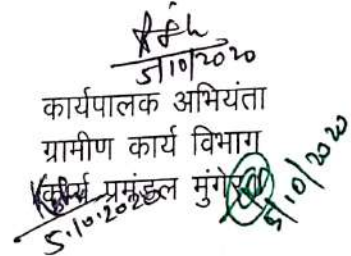 5/10/2020
कार्यपालक अभियंता
ग्रामीण कार्य विभाग
कार्य प्रमंडल मुंगेर
5.10.2020
5/10/2020